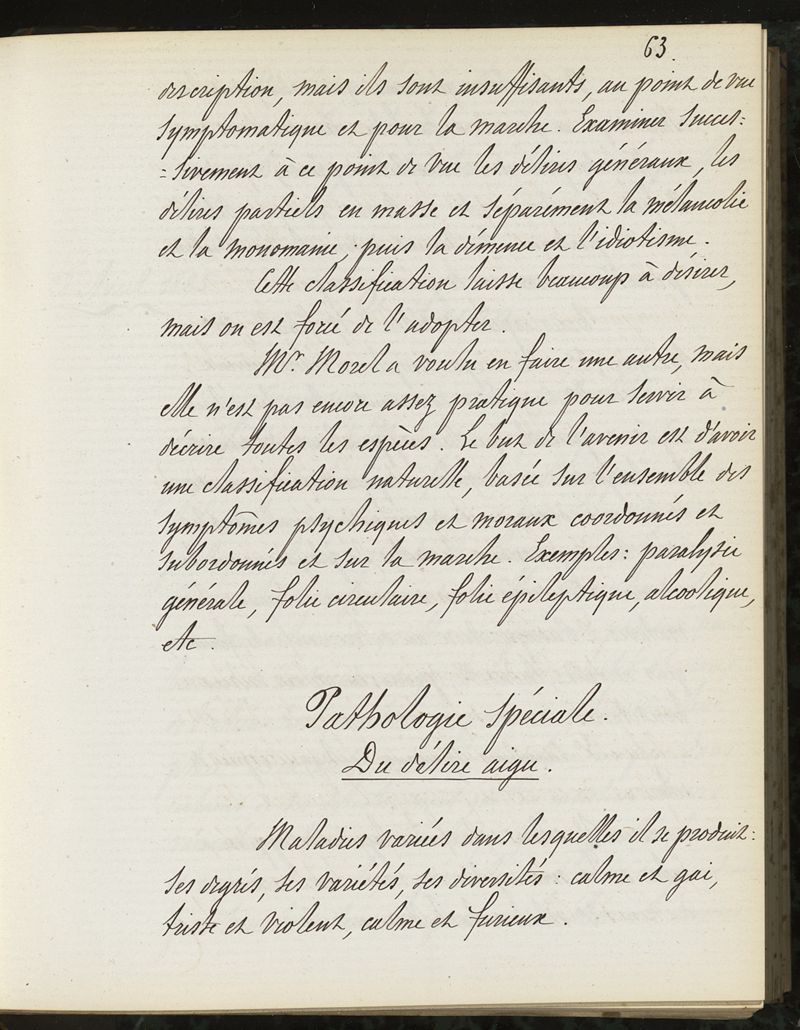 63.
description, mais ils sont insuffisants, au point de vue
symptomatique et pour la marche. Examiner succes=
=sivement à ce point de vue les délires généraux, les
délires partiels en masse et séparément la mélancolie
et la monomanie, puis la démence et l'idiotisme.
Cette classification laisse beaucoup à désirer,
mais on est forcé de l'adopter.
Mr. Morel a voulu en faire une autre, mais
elle n'est pas encore assez pratique pour servir à
décrire toutes les espèces. Le but de l'avenir est d'avoir
une classification naturelle, basée sur l'ensemble des
symptômes psychiques et moraux coordonnés et
subordonnés et sur la marche. Exemples: paralysie
générale, folie circulaire, folie épileptique, alcoolique,
etc.
Pathologie spéciale.
Du délire aigu.
Maladies variées dans lesquelles il se produit:
ses degrés, ses variétés, ses diversités: calme et gai,
triste et violent, calme et furieux.